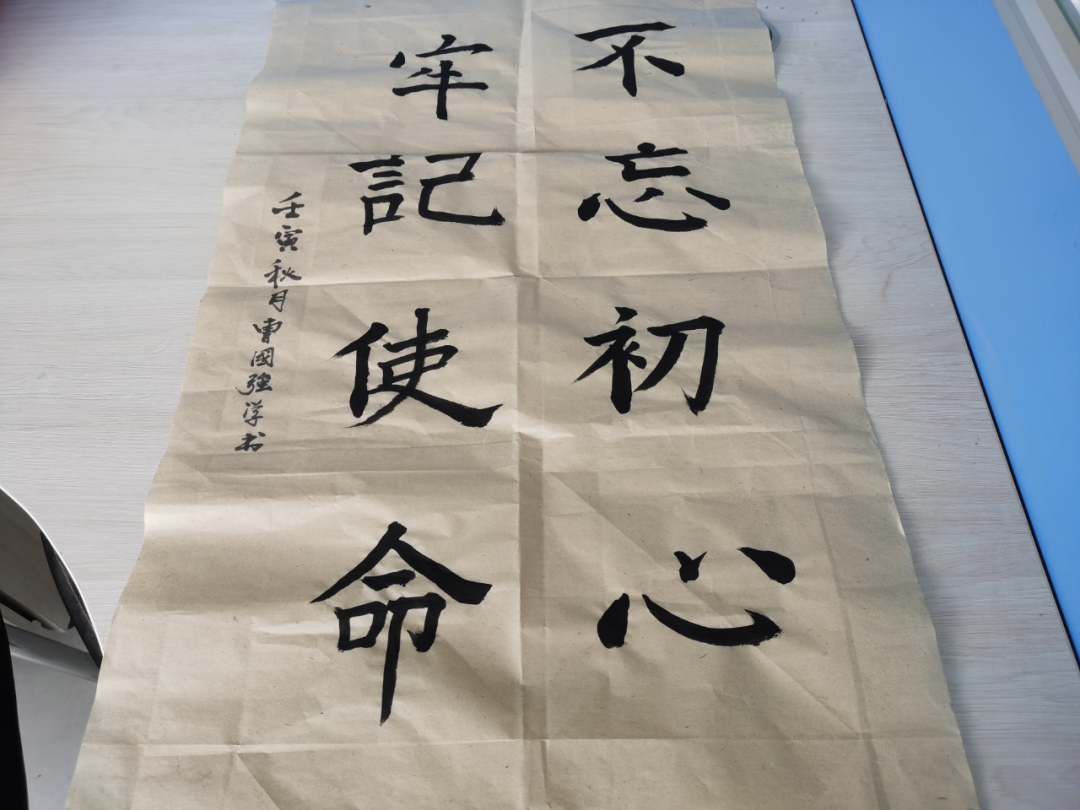 不忘初心
牢記使命
壬寅秋月曹國強学书